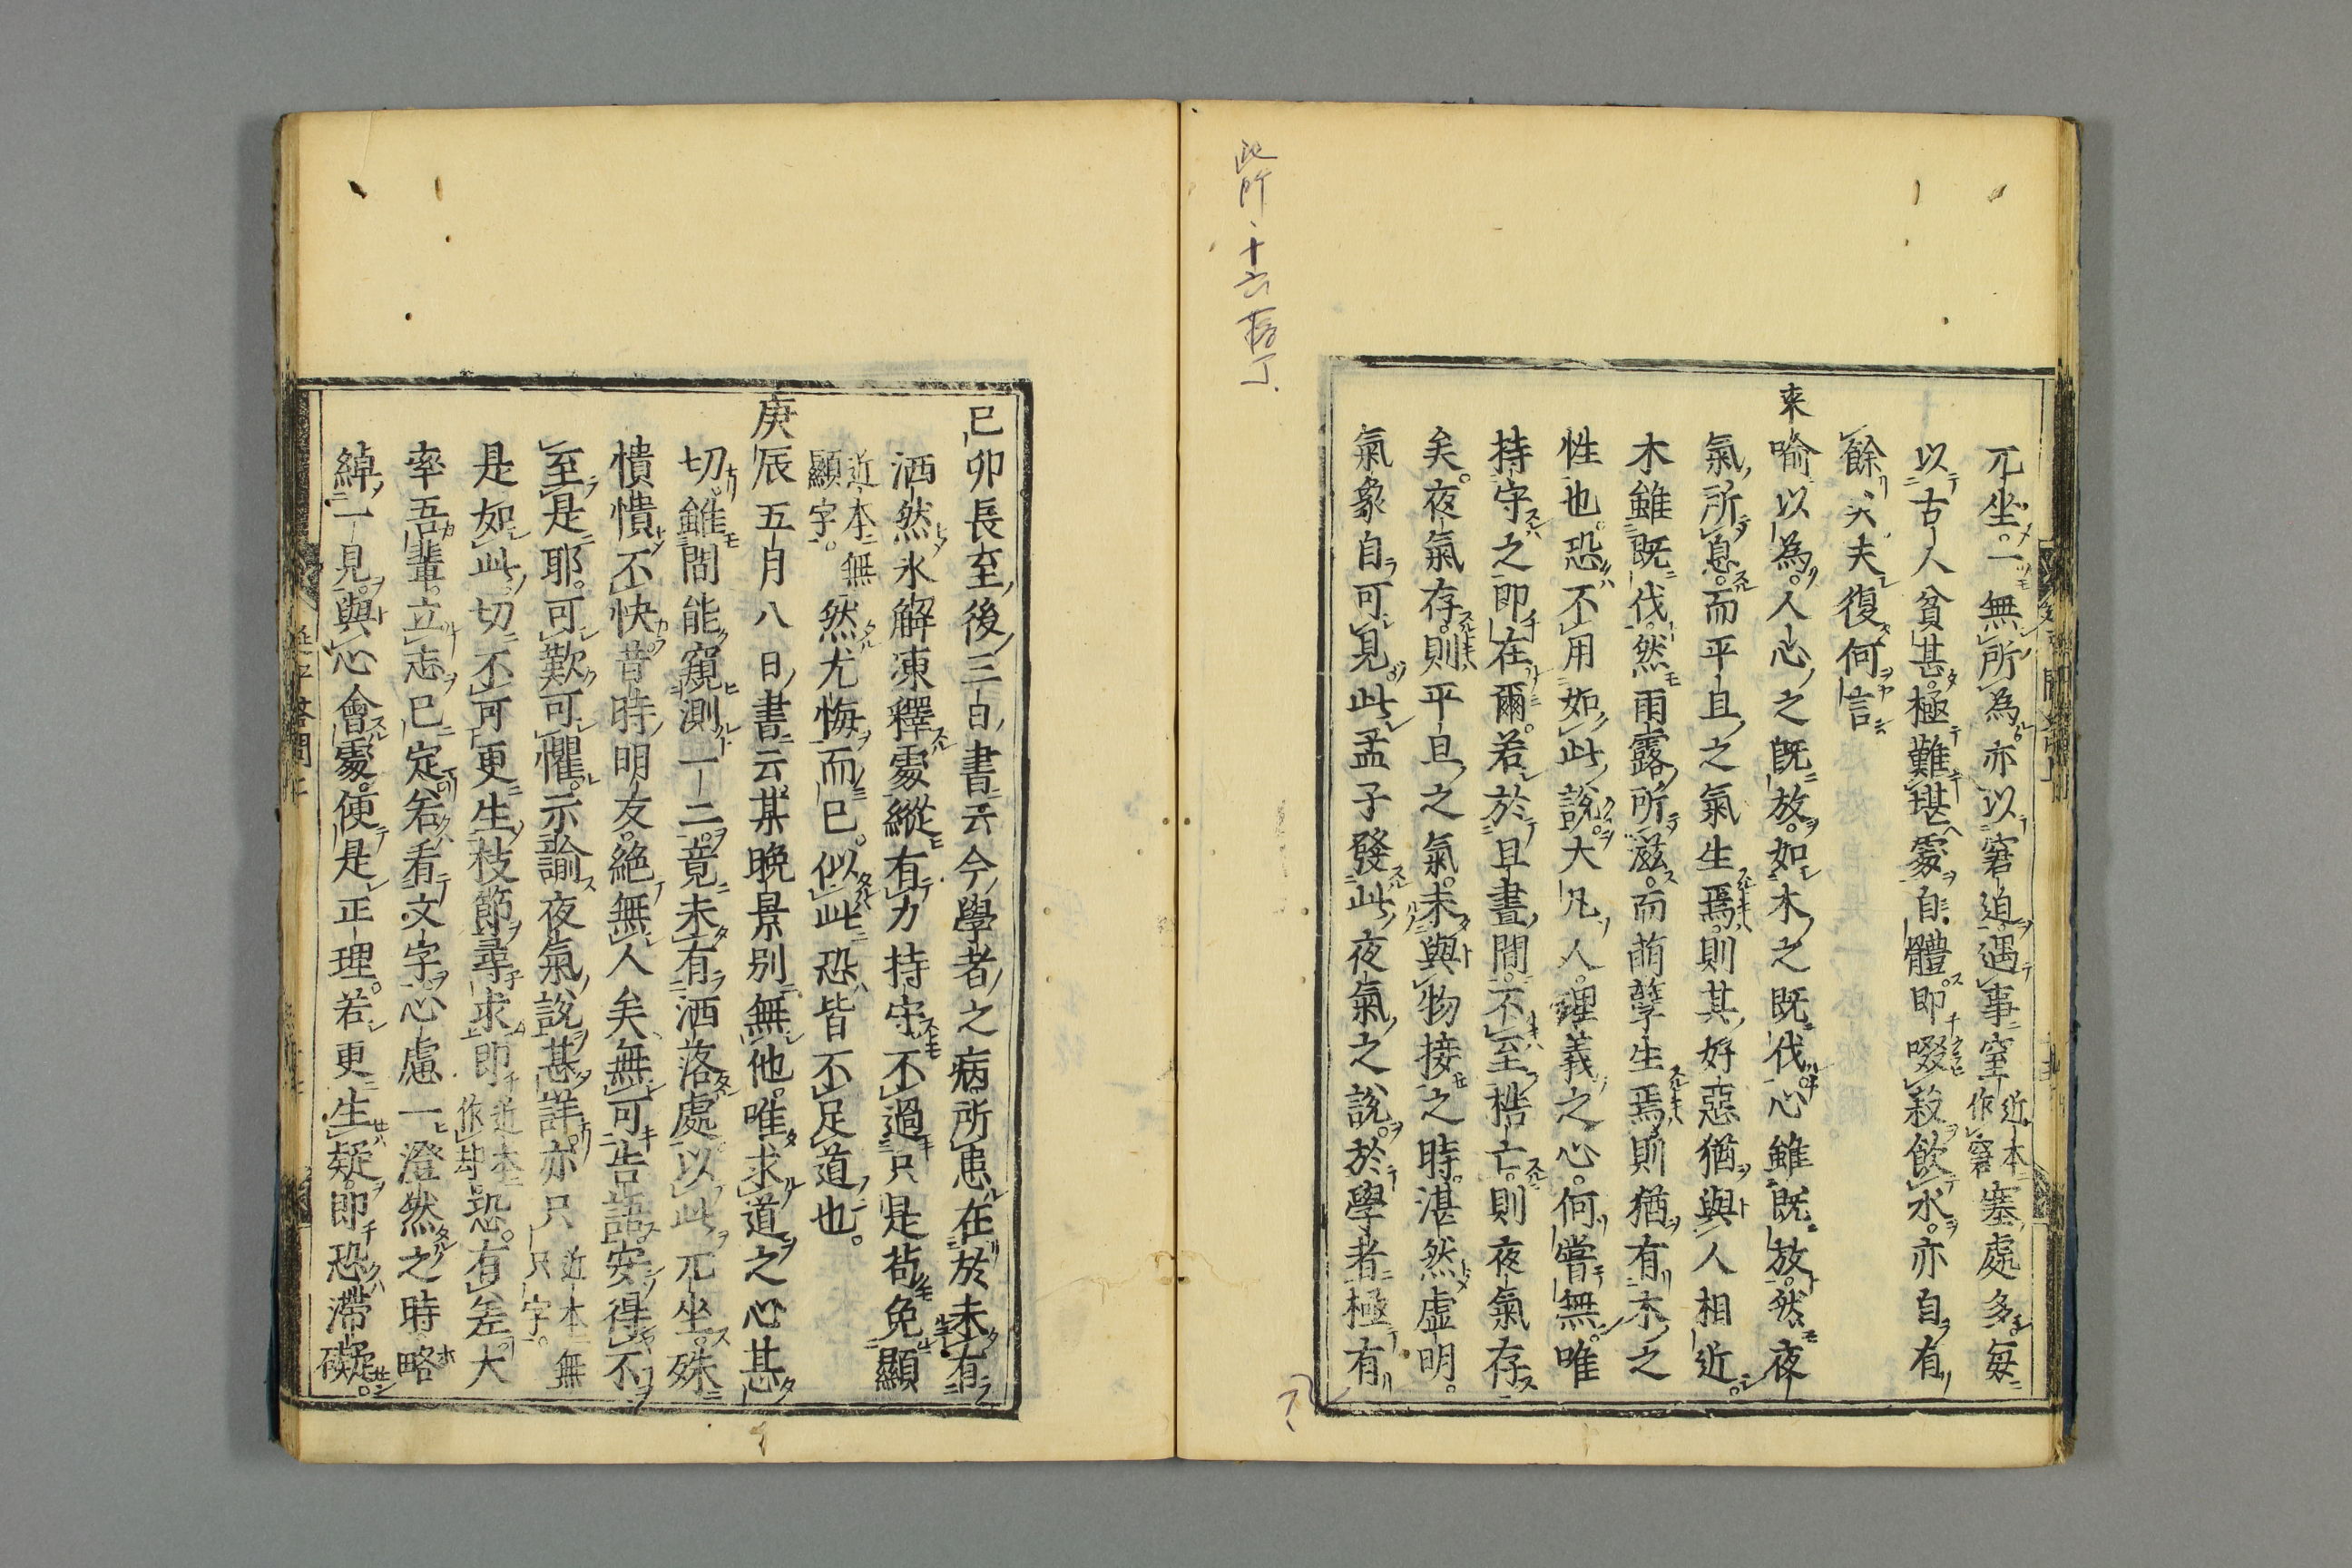 兀坐。一無所為。亦以窘迫。遇事窒近本作窘塞處多。每
以古人貧甚。極難堪處。自體即啜菽飲水。亦自有
餘矣。夫復何言
來喻以為。人心之既放。如木之既伐。心雖既放。然夜
氣所息。而平旦之氣生焉。則其好惡猶與人相近。
木雖既伐。然雨露所滋。而萌孼生焉。則猶有木之
性也。恐不用如此說。大凡人。理義之心。何嘗無。唯
持守之即在爾。若於旦晝間。不至梏亡。則夜氣存
矣。夜氣存。則平旦之氣。未與物接之時。湛然虛明。
氣象自可見。此孟子發此夜氣之說。於學者極有
此所、十六
已卯長至後三白書云今學者之病所患在於未有
洒然冰解凍釋處縱有力持守不過只是苟免顯
近本無顯字。然尤悔而已。似此恐皆不足道也。
庚辰五月八日書云某晚景別無他。唯求道之心甚
切。雖間能窺測一二。竟未有洒落處以此兀坐。殊
憒憒不快。昔時明友。絕無人矣。無可告語。安得不
至是耶。可歎可懼。示諭夜氣說甚詳。亦只近本無只字。
是如此。切不可更生枝節尋求即近本作却恐。有差。大
率吾輩。立志已定。若看文字。心慮一澄然之時。略
綽一見與心會處。便是正理。若更生疑。即恐滯礙。
延平答問